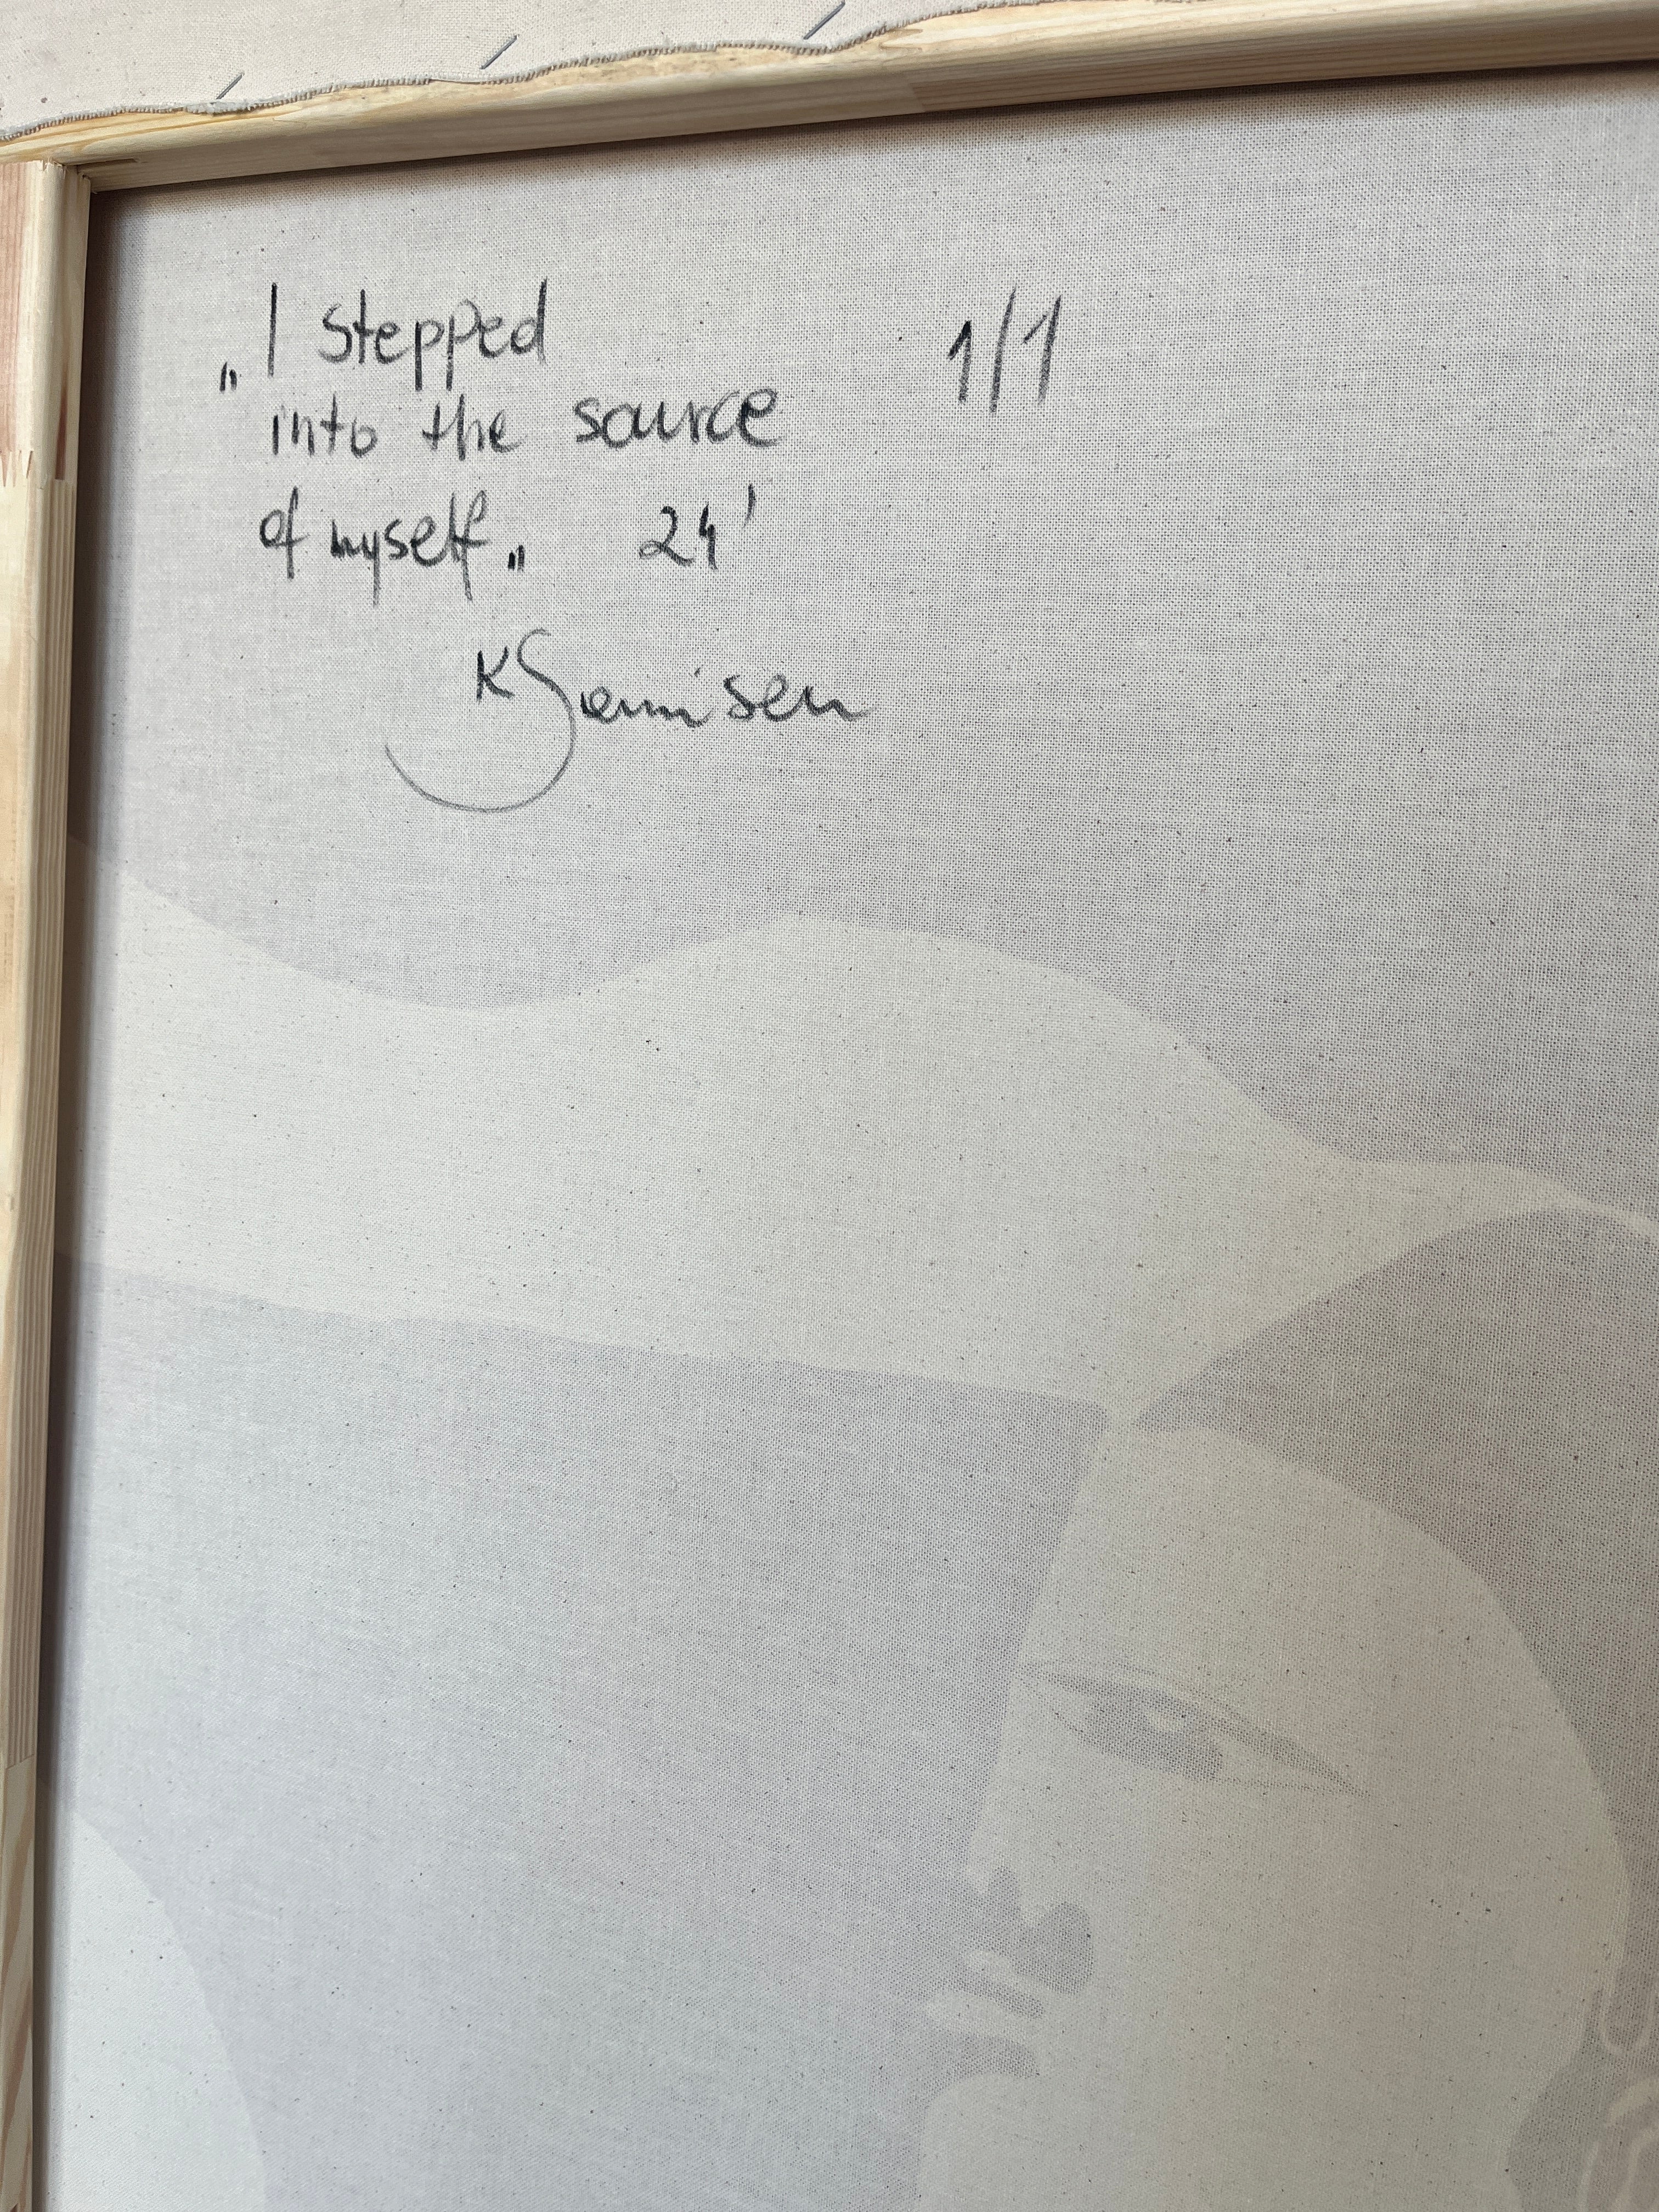 „I Stepped
into the source
of myself„ 24'
1/1